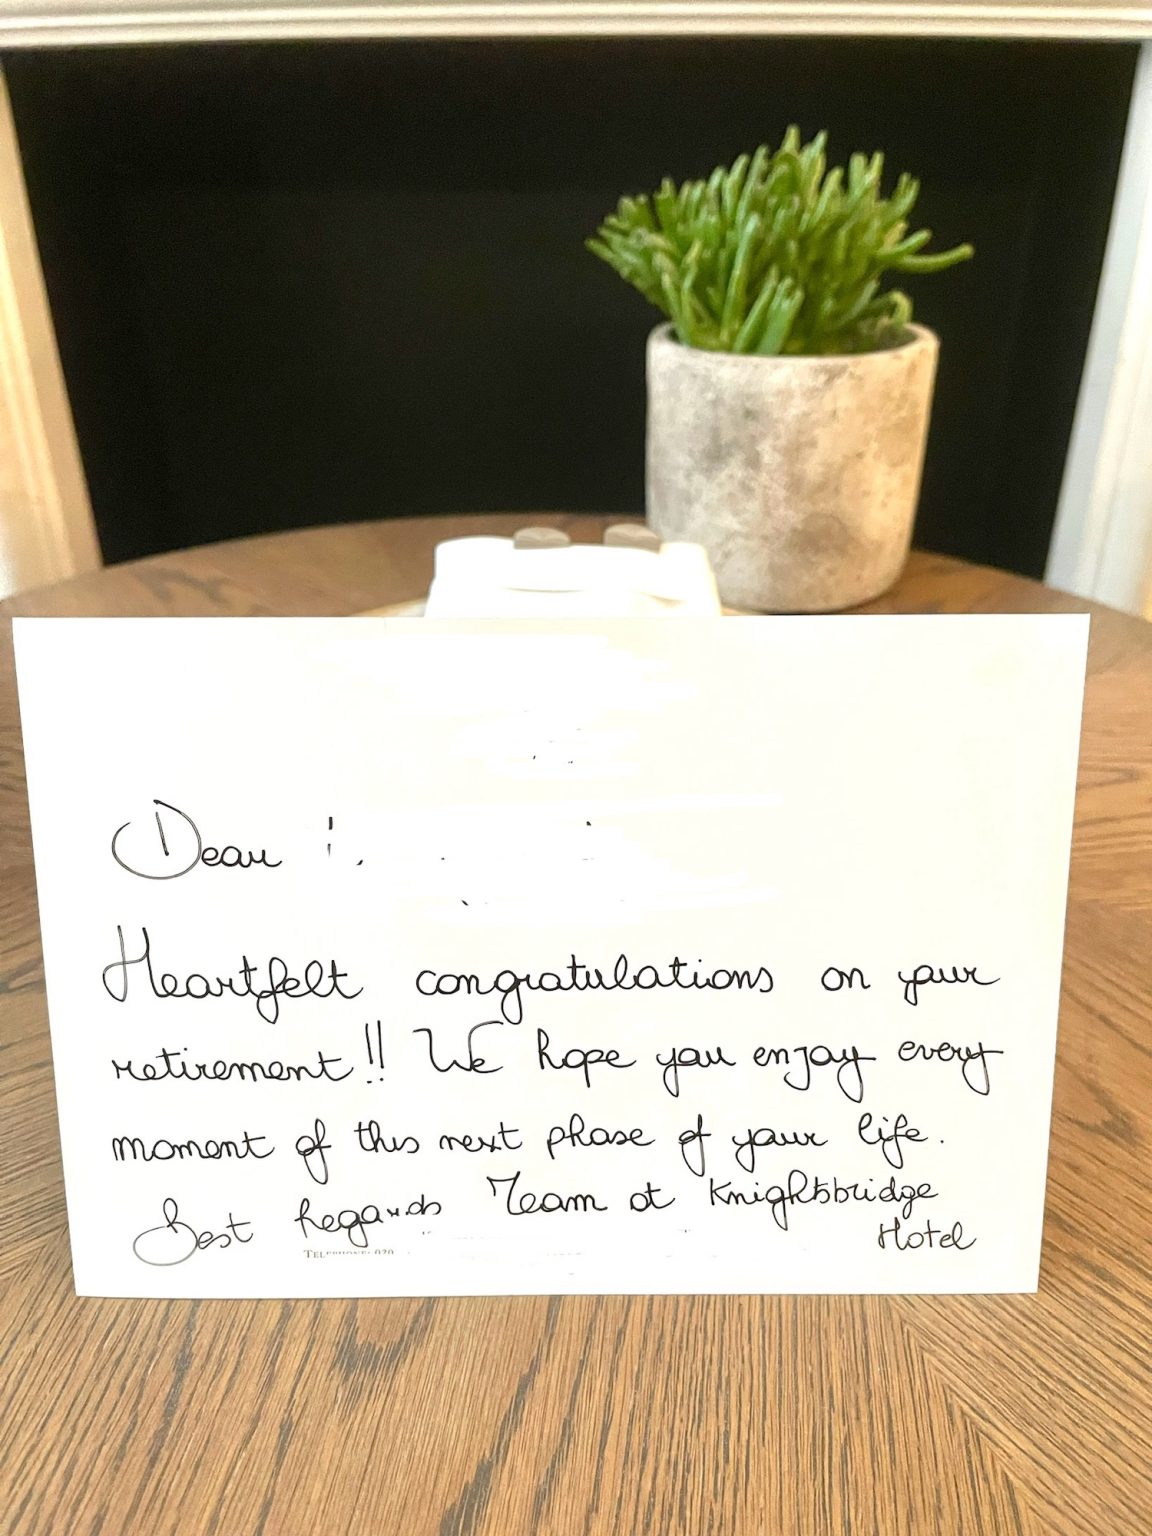 Dear
Heartfelt congratulations on your
retirement!! We hope you enjoy every
moment of this next phase of your life.
Best Regards Team at Knightsbridge
Hotel
TELEPHONE: 020